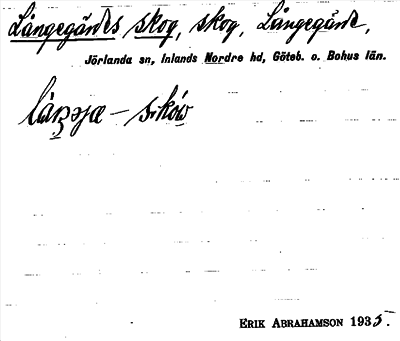 Långegärdes skog, skog, Långegärde,
Jörlanda sn, Inlands Nordre hd, Göteb. o. Bohus län.
ERIK ABRAHAMSON 1935.